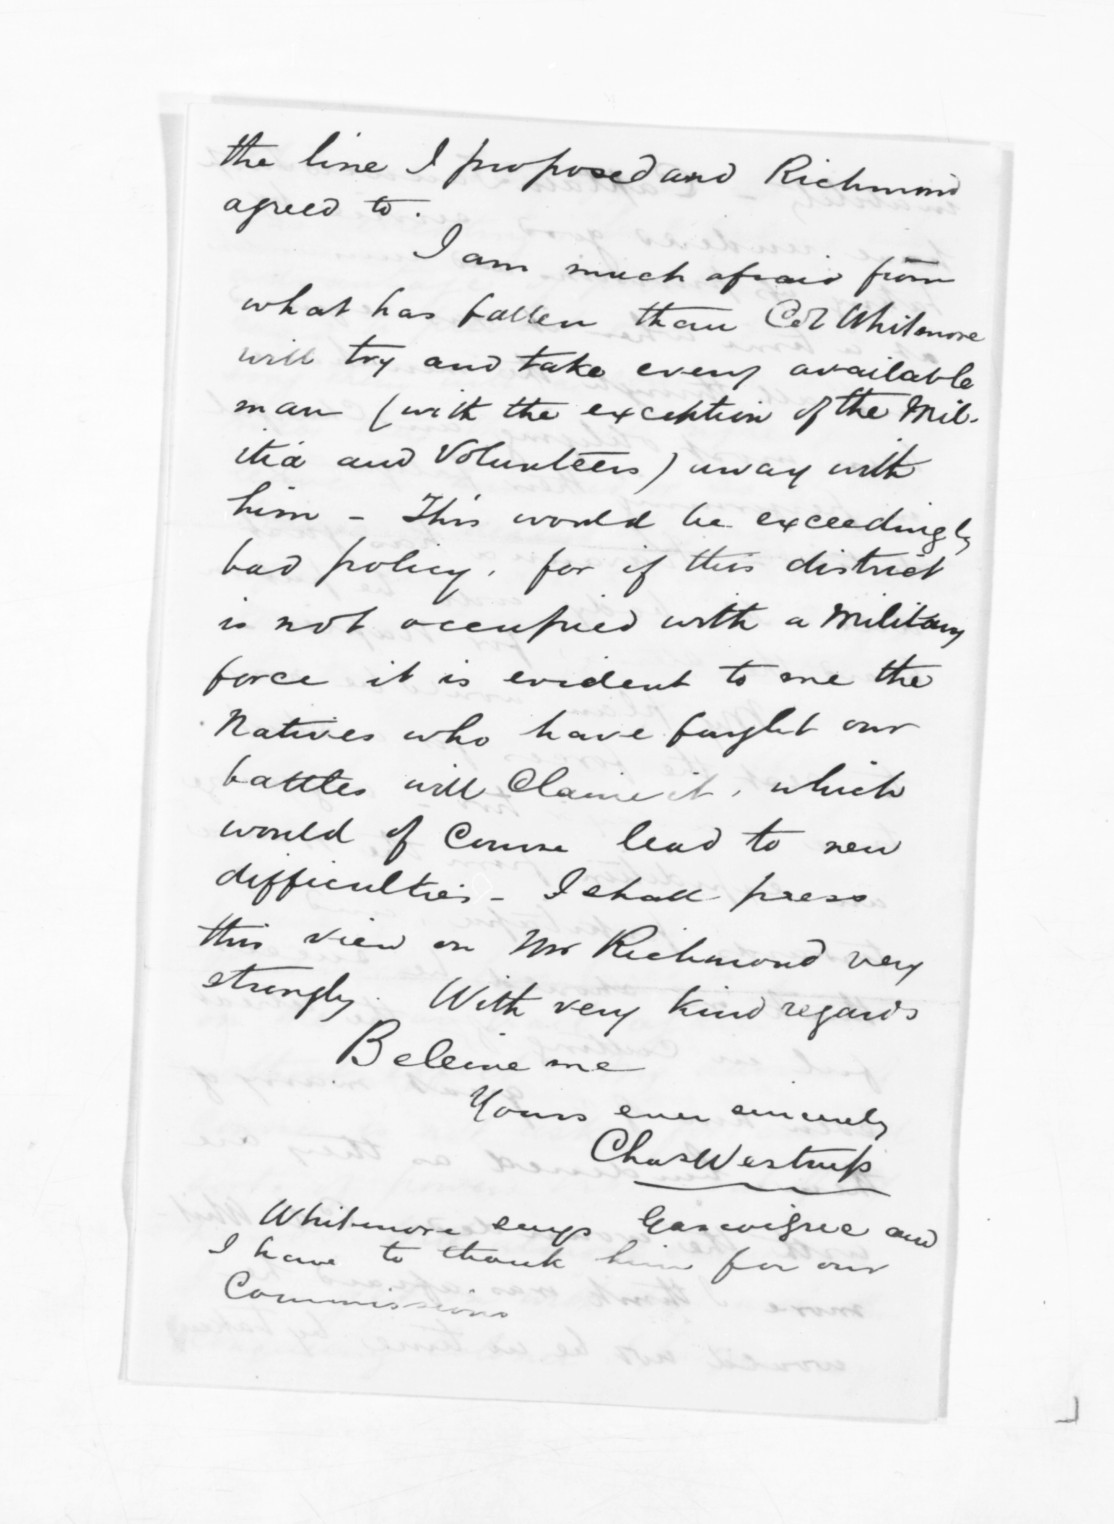 the line I proposed and Richmond
agreed to.
I am much afraid from
what has fallen than Col Whitmore
will try and take every available
man (with the exception of the Mil-
itia and Volunteers) away with
him - This would be exceedingly
bad policy, for if this district
is not occupied with a Military
force it is evident to me the
Natives who have fought our
battles will Claim it, which
would of Course lead to new
difficulties - I shall press
this view on Mr Richmond very
strongly. With very kind regards
Beleive me
Yours ever sincerely
Chas Westrup
Whitmore says Gascoigne and
I have to thank him for our
Commissions